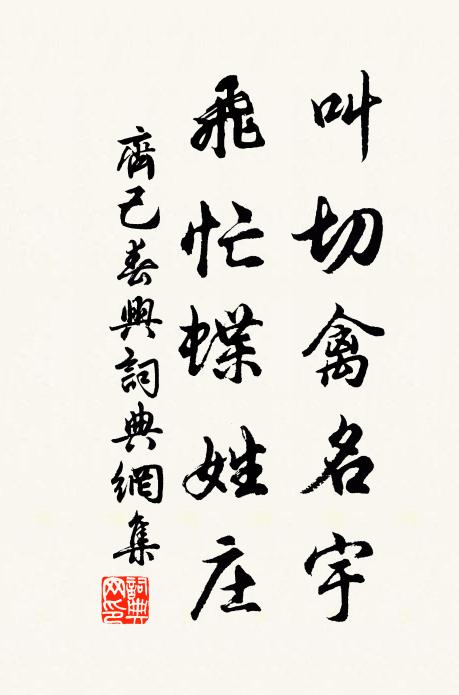 叫切禽名宇
飛忙蝶姓庄
齊己春興詞典網集
詞典网印